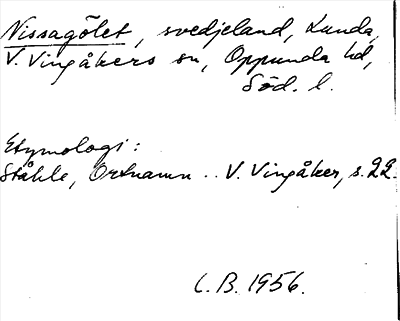 Nissagölet, svedjeland, Lunda,
V. Vingåkers sn, Oppunda hd,
Söd. l.
Etymologi:
Ståhle, Ortnamn .. V. Vingåker, s. 22.
C.B. 1956.